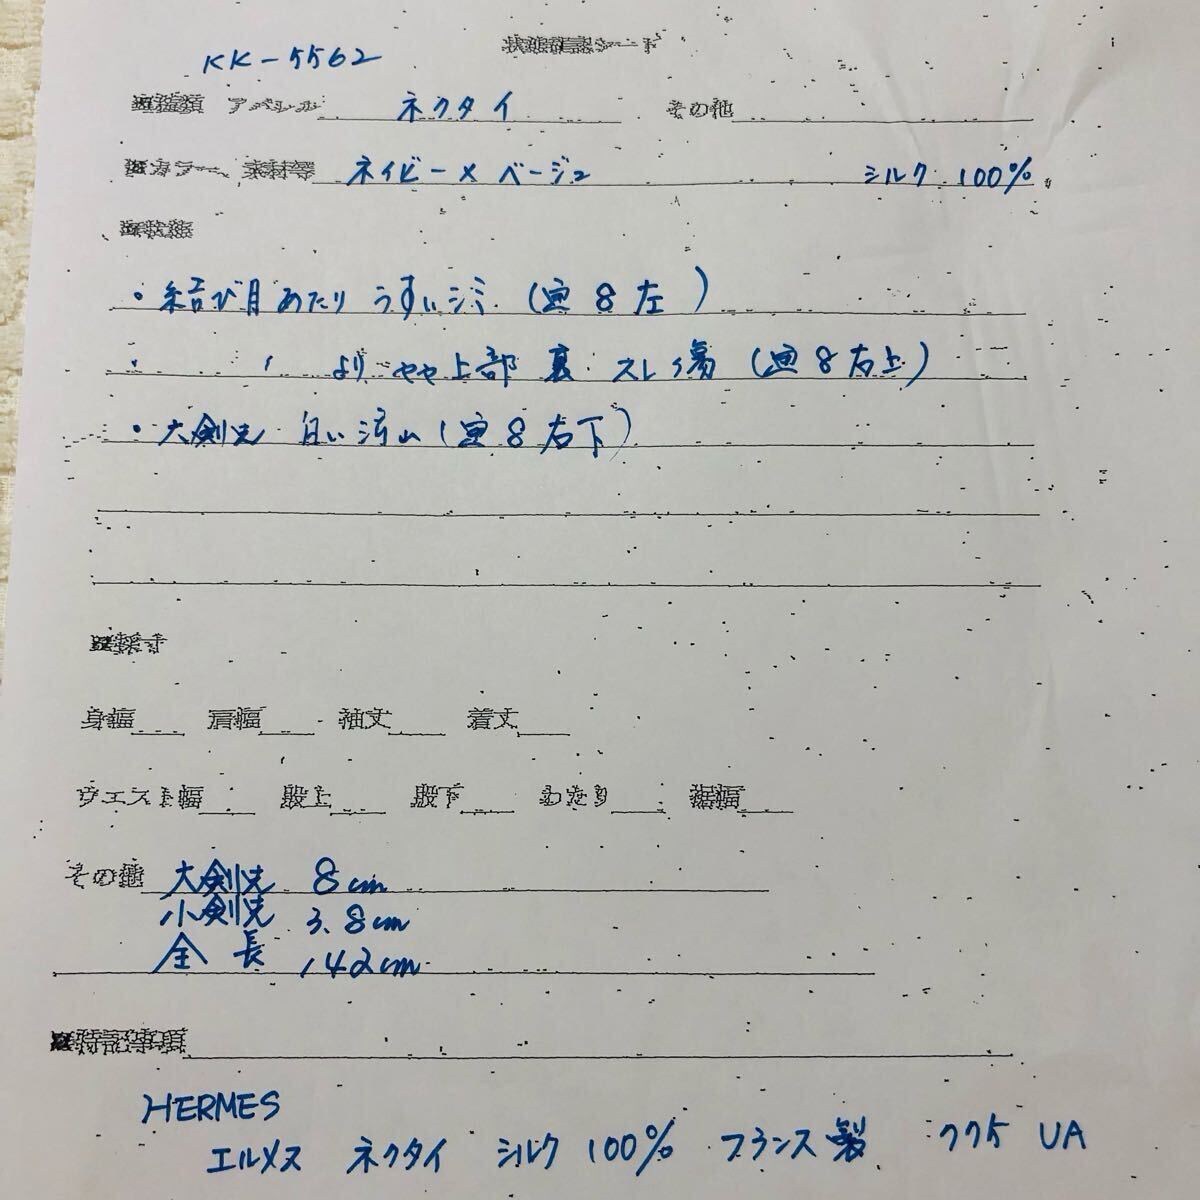 KK-5562
状態確認シート
■種類 アパレル ネクタイ その他
■カラー、素材等 ネイビー×ベージュ シルク 100%
■状態
・結び目あたり うすいシミ (画8左)
・ 〃 より やや上部 裏 スレ傷 (画8右上)
・大剣先 白い汚れ (画8右下)
■採寸
身幅 肩幅 袖丈 着丈
ウエスト幅 股上 股下 わたり 裾幅
その他 大剣先 8cm
小剣先 3.8cm
全長 142cm
■特記事項
HERMES
エルメス ネクタイ シルク 100% フランス製 7775 UA